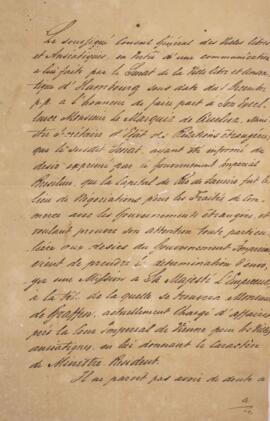 Le soussigné Consul Général des Villes libres
et Anséatiques, en vertu d'une communication
a lui faite par le Sénat de la Ville libre et Anséa-
tique d'Hambourg sous date du Decembre
p.p. a l'honneur de faire part a Son Excel-
lence Monsieur le Marquis de Mini-
stre Secretaire d'Etat des Relations étrangères
que le susdit Senat, ayant été informé du
desir exprimé par le Gouvernement Imperial
Bresilien, que la Capital de Rio de Janeiro fut le
lieu de Negociations pour les Traités de Com-
merce avec les Gouvernements étrangers, et
voulant prouver son attention toute particu-
lière aux desirs du Gouvernement Imperial
vient de prendre la determination d'envo-
yer une Mission a Sa Majesté L'Empereur
a la tête de la quelle se trouvera Monsieur
de Graffen, actuellement Chargé d'affaires
près la Cour Imperial de Vienne pour les Villes
anséatiques, en lui donnant le caractère
de Ministre Resident.
Il ne parait pas avoir de doute a